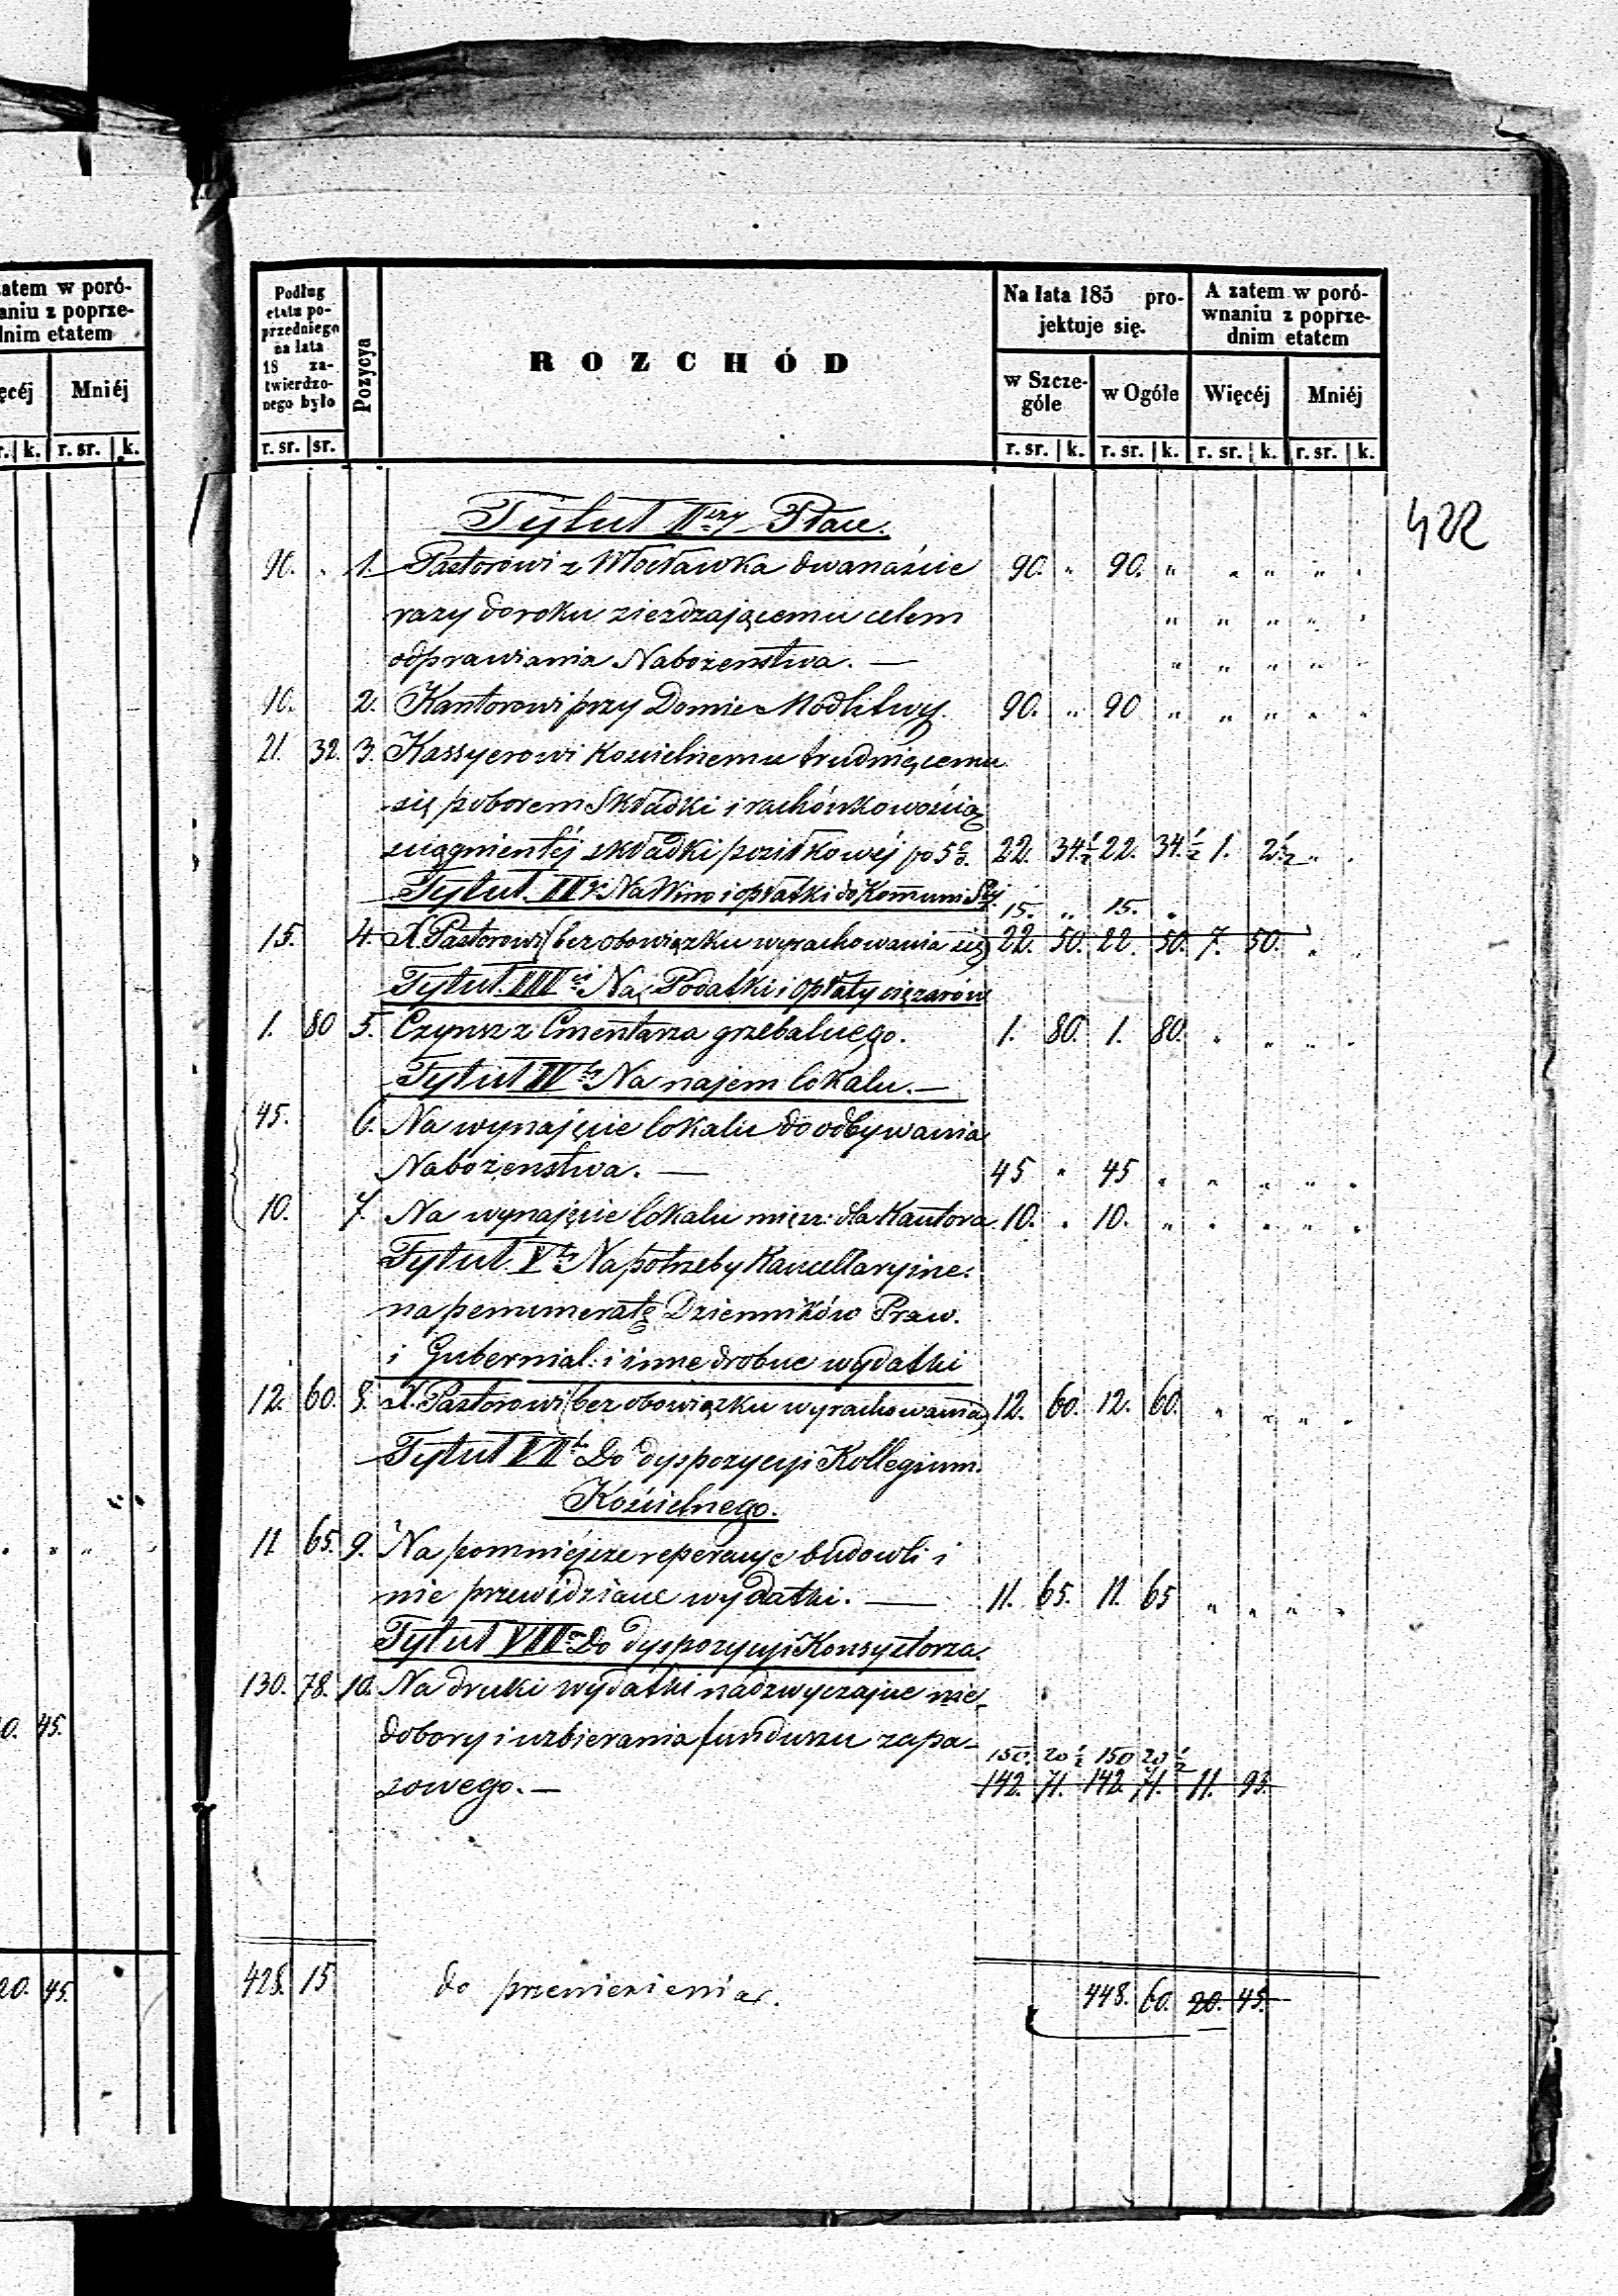 zatem w poró-
aniu z poprze-
dnim etatem
ęcéj Mniéj
r. k. r. sr. k.
0. 45.
20. 45.
Podług
etatu po-
przedniego
na lata
18 za-
twierdzo-
nego było
r. sr. sr.
Pozycya
ROZCHÓD
Na lata 185 pro-
jektuje się.
w Szcze-
góle
w Ogóle
r. sr. k. r. sr. k.
A zatem w poró-
wnaniu z poprze-
dnim etatem
Więcéj Mniéj
r. sr. k. r. sr. k.
422
Tytuł Place.
90. " 1. Pastorowi z Włocławka dwanaście 90. " 90. " " " " "
razy do roku ziezdzającemu celem " " " " "
odprawiania Nabożenstwa. — " " " " "
10. 2. Kantorowi przy Domie Modlitwy. 90. " 90 " " " " "
21. 32. 3. Kassyerowi Kościelnemu trudniącemu
się poborem Składki i rachónkowością
sciągnientéj składki po 5 22. 34½ 22. 34½ 1. 2½ " "
Tytuł II Na Wino i opłatki do Kommuni 15. " 15. "
15. 4. X. Pastorowi (bez obowiązku wyrachowania się) 22. 50. 22. 50. 7. 50. " "
Tytuł III Na Podatki i opłaty ciężarów
1. 80 5. Czynsz z Cmentarza grzebalnego. 1. 80. 1. 80. " " " "
Tytuł IV Na najem lokalu. —
45. 6. Na wynajęcie lokalu do odbywania
Nabożenstwa. — 45 " 45 " " " " "
10. 7. Na wynajęcie lokalu dla Kantora 10. " 10. " " " " "
Tytuł V Na potrzeby Kancellaryine.
na penumeratę Dzienników Praw.
i Gubernial: i inne drobne wydatki
12. 60. 8. X. Pastorowi (bez obowiązku wyrachowania) 12. 60. 12. 60. " " " "
Tytuł VI Do dyspozycyi Kollegium.
Kościelnego.
11 65. 9. Na pomniéjsze reperacye budowli i
nie przewidziane wydatki. — 11. 65. 11. 65 " " " "
Tytuł VII Do dyspozycyi Konsystorza.
130. 78. 10. Na druki wydatki nadzwyczajne nie-
dobory i uzbierania funduszu zapa- 150. 20½ 150 20½
sowego. — 142. 71. 142. 71. 11. 93.
428. 15 do przeniesienia. 448. 60. 20. 45.